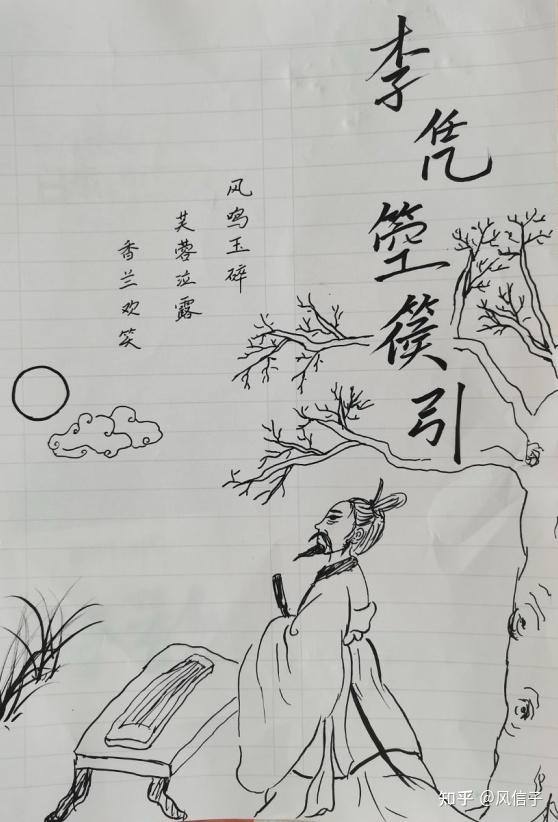 李凭箜篌引
风鸣玉碎
芙蓉泣露
香兰欢笑
知乎 @风信子